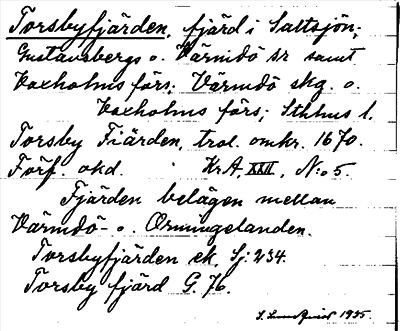 Torsbyfjärden, fjärd i Saltsjön,
Gustavsbergs o. Värmdö sr samt
Vaxholms förs; Värmdö skg. o.
Vaxholms förs; Sthlms l.
Torsby Fiärden, trol. omkr. 1670.
Förf. okd. KrA, XXII, N:o 5.
Fjärden belägen mellan
Värmdö- o. Ormingelanden.
Torsbyfjärden ek. Sj: 234.
Torsby fjärd G. 76.
S. Lundqvist 1935.